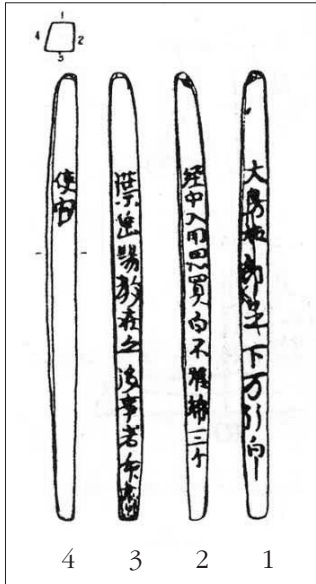 1
4 2
3
大烏知郎足下万引白丨
経中入用思買白不雖紙一二个
牒垂賜教在之後事者命盡
使内
4 3 2 1